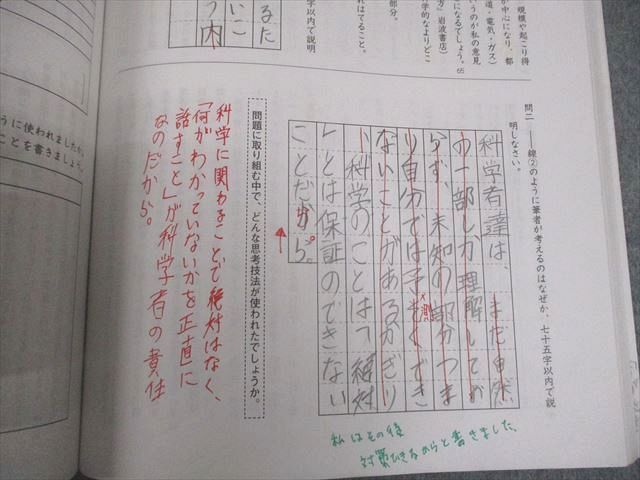 規模や起こり得
が中心になり、都
道・電気・ガス)
になるでしょう。65
いうのが私の意見
方』岩波書店)
学的なよりどこ
部分。
れはてること。
以内で説明
るた
いこ
う内
問二 ――線②のように筆者が考えるのはなぜか、七十五字以内で説
明しなさい。
科学者達は、まだ自然
の一部しか理解してお
らず、未知の部分つま
り自分では予そくでき
測
ないことがあるかぎり
、科学のことは「絶対
」とは保証のできない
ことだから。
私はその後
対策できるからと書きました。
問題に取り組む中で、どんな思考技法が使われたでしょうか。
科学に関わることで絶対はなく、
「何がわかっていないかを正直に
話すこと」が科学者の責任
なのだから。
うに使われましたか。
ことを書きましょう。